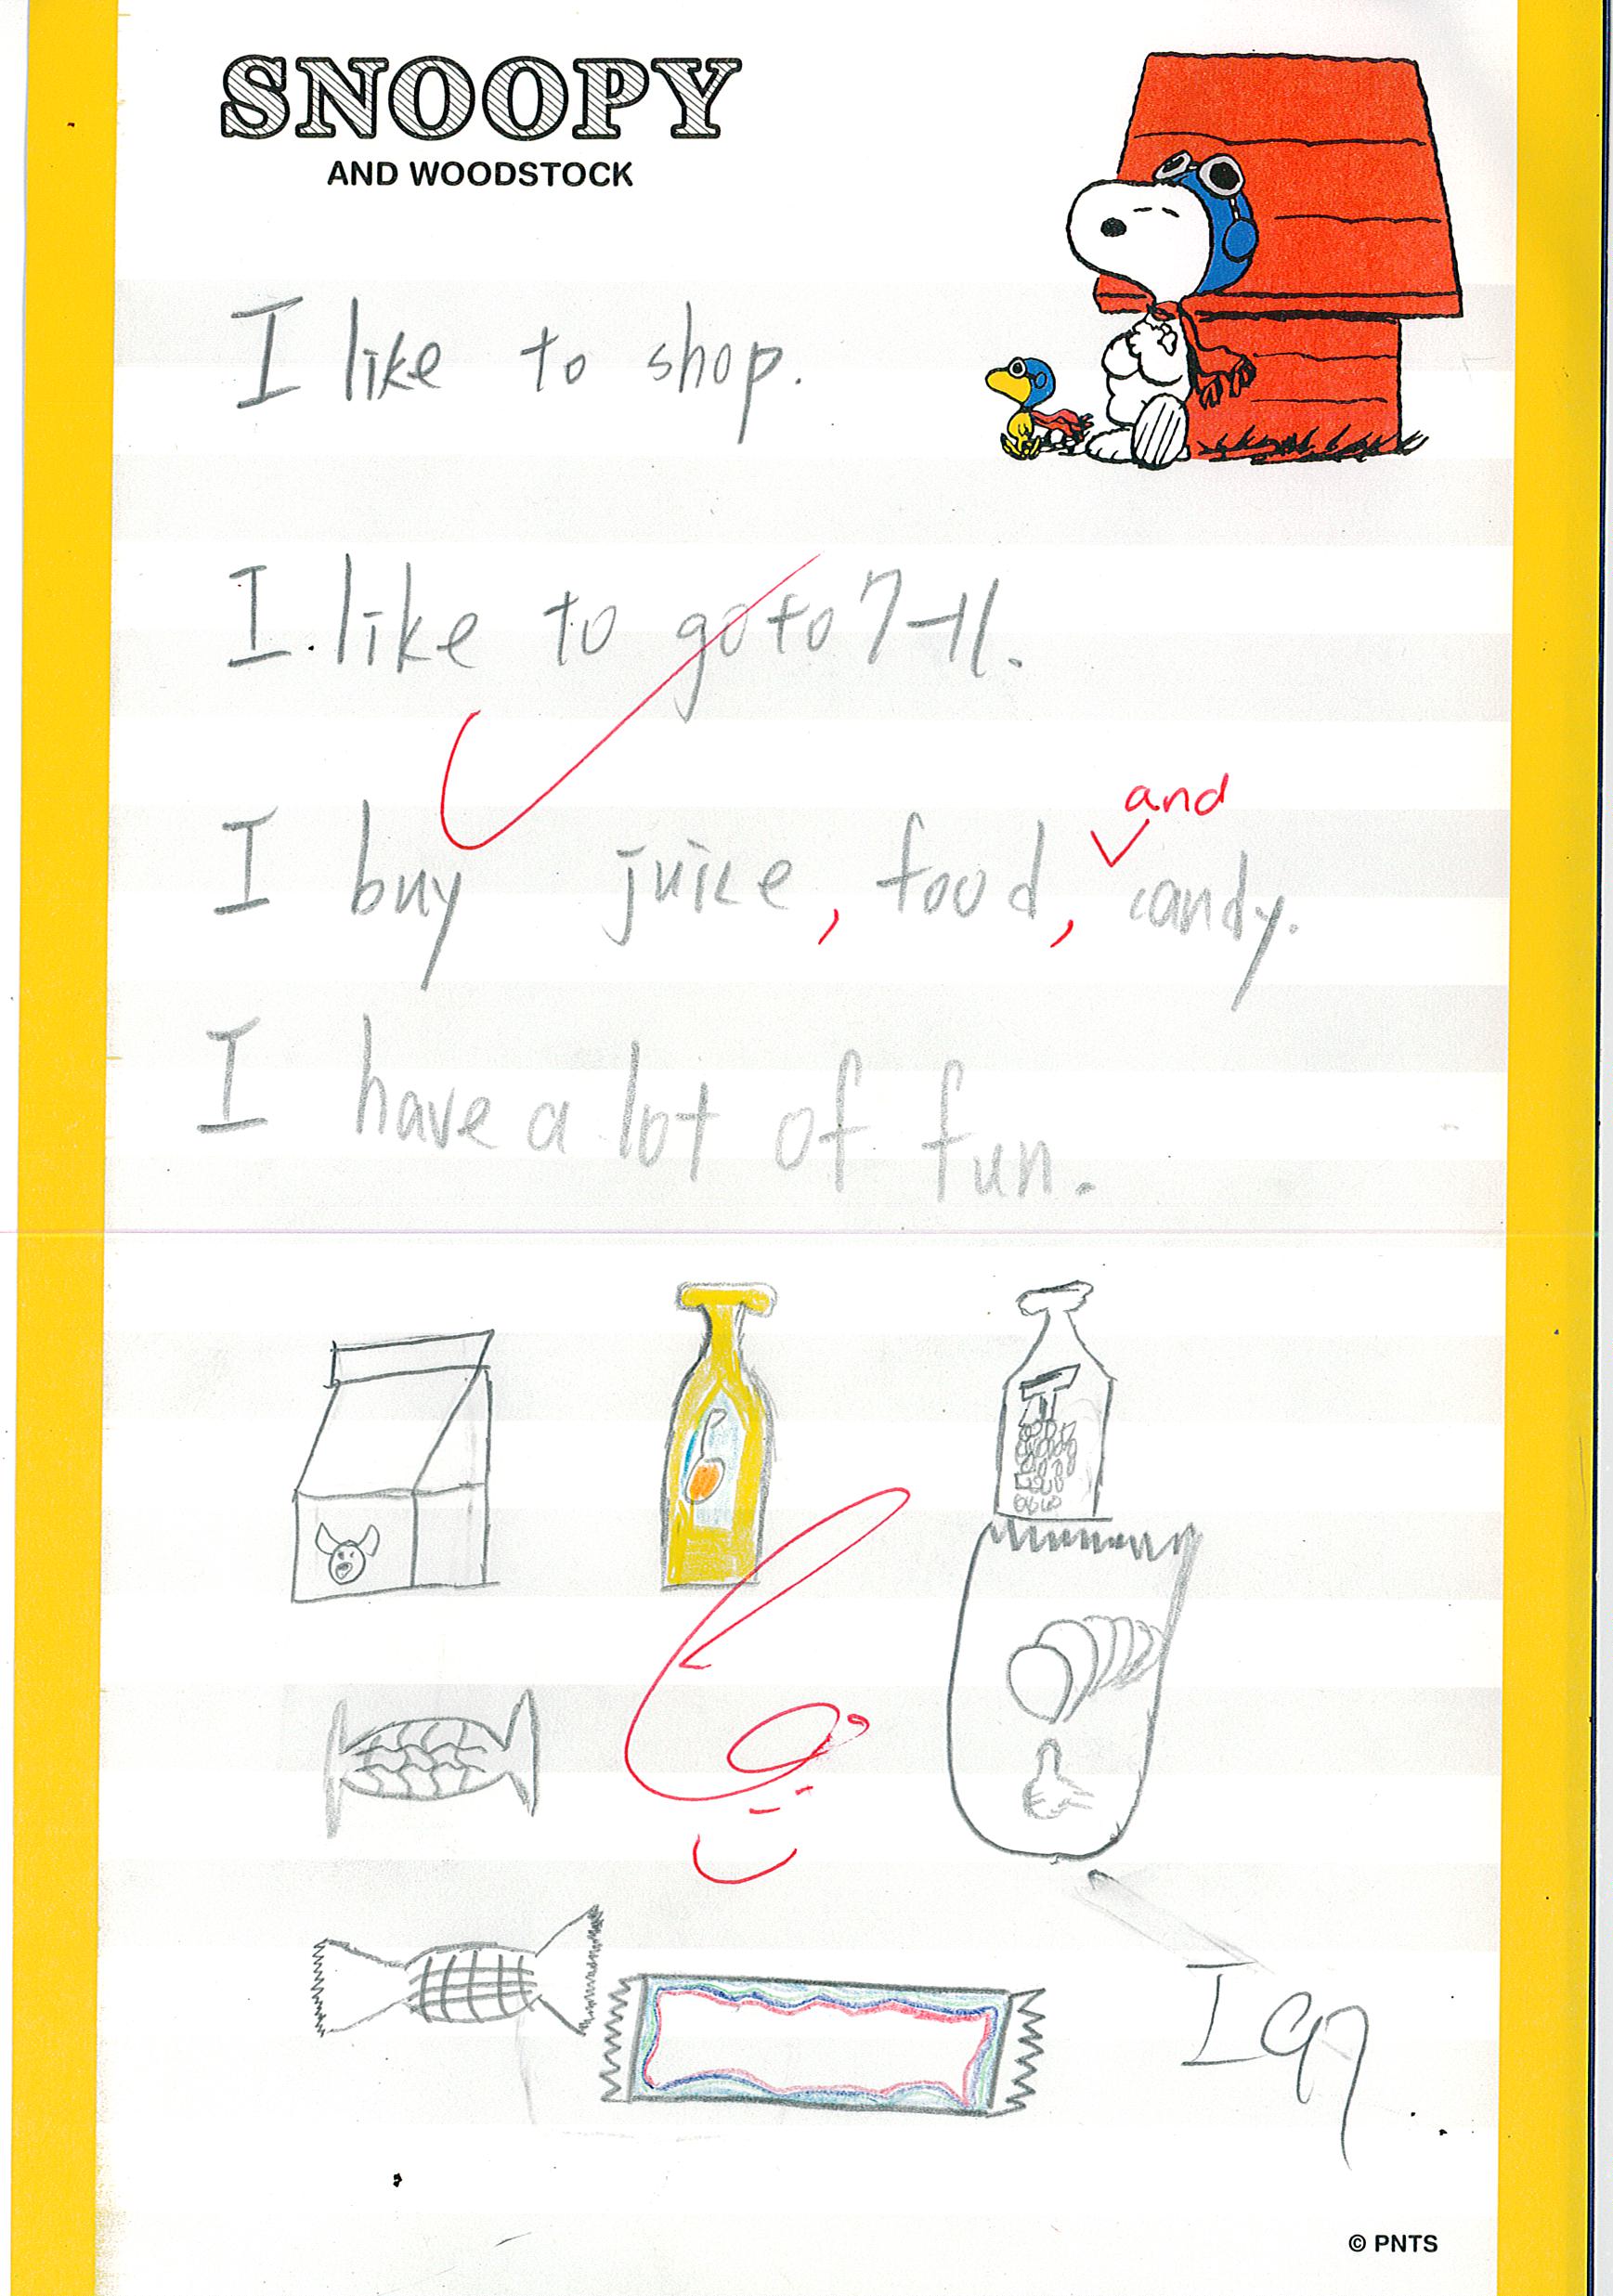 SNOOPY
AND WOODSTOCK
I like to shop.
I like to go to 7-11.
and
I buy juice, food, candy.
I have a lot of fun.
Ian
© PNTS